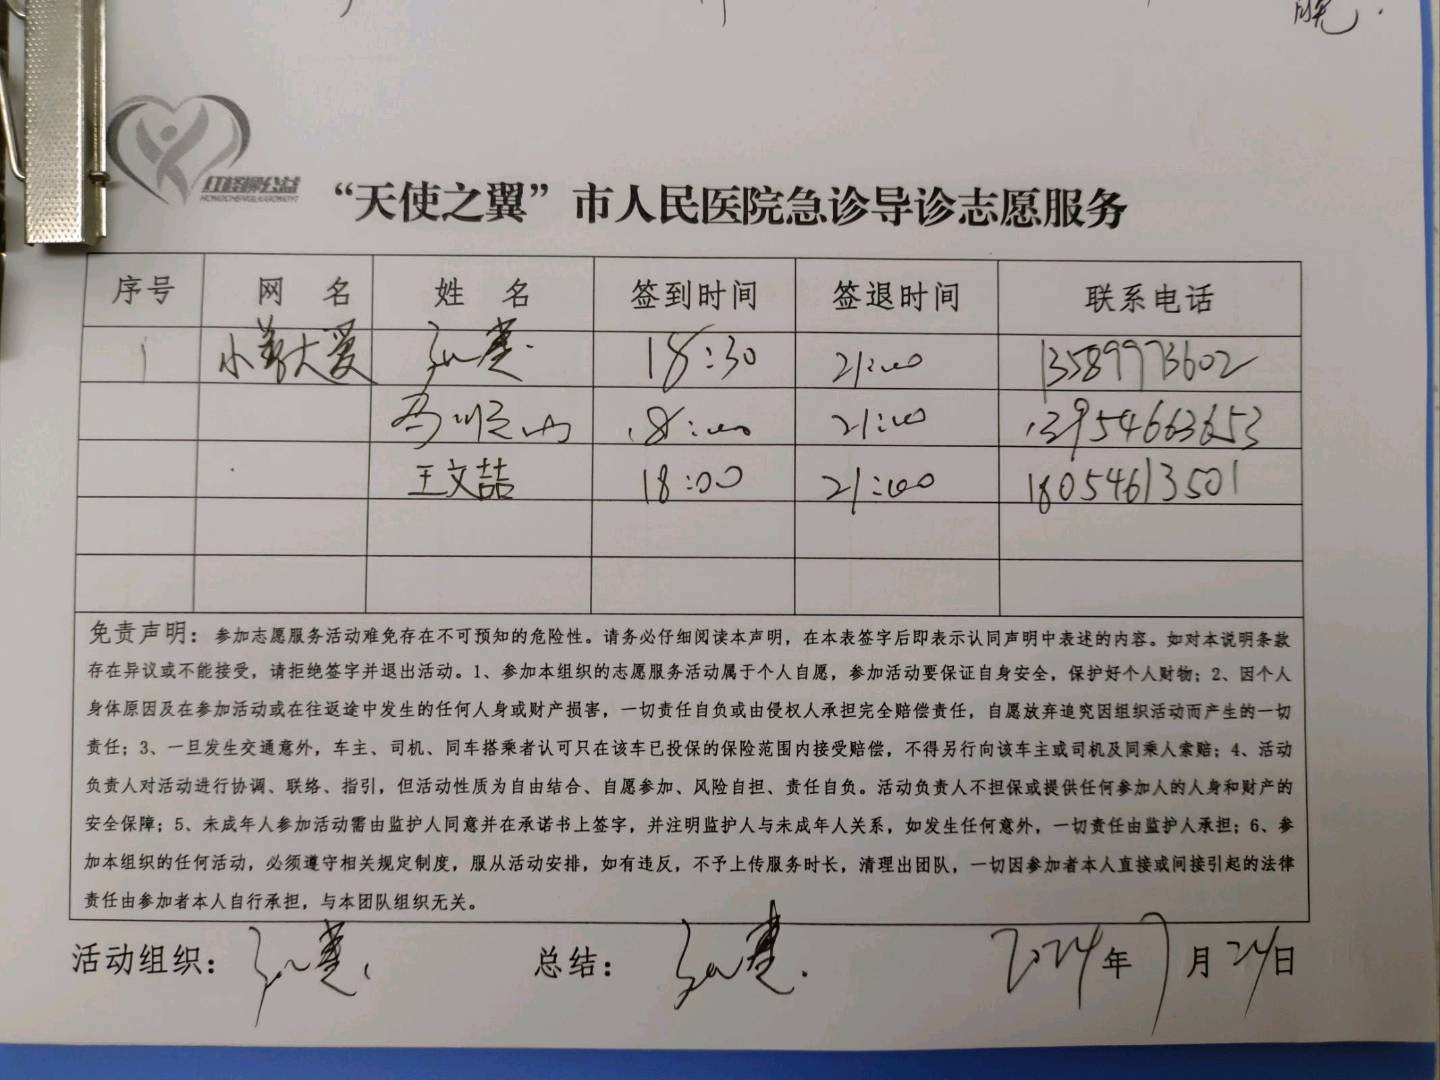 红橙黄公益
HONGCHENGHUANGGONGYI
“天使之翼”市人民医院急诊导诊志愿服务
序号 网 名 姓 名 签到时间 签退时间 联系电话
1 小善大爱 18:30 21:00 13589973602
18:00 21:00 13954663653
王文喆 18:00 21:00 18054613501
免责声明：参加志愿服务活动难免存在不可预知的危险性。请务必仔细阅读本声明，在本表签字后即表示认同声明中表述的内容。如对本说明条款
存在异议或不能接受，请拒绝签字并退出活动。1、参加本组织的志愿服务活动属于个人自愿，参加活动要保证自身安全，保护好个人财物；2、因个人
身体原因及在参加活动或在往返途中发生的任何人身或财产损害，一切责任自负或由侵权人承担完全赔偿责任，自愿放弃追究因组织活动而产生的一切
责任；3、一旦发生交通意外，车主、司机、同车搭乘者认可只在该车已投保的保险范围内接受赔偿，不得另行向该车主或司机及同乘人索赔；4、活动
负责人对活动进行协调、联络、指引，但活动性质为自由结合、自愿参加、风险自担、责任自负。活动负责人不担保或提供任何参加人的人身和财产的
安全保障；5、未成年人参加活动需由监护人同意并在承诺书上签字，并注明监护人与未成年人关系，如发生任何意外，一切责任由监护人承担；6、参
加本组织的任何活动，必须遵守相关规定制度，服从活动安排，如有违反，不予上传服务时长，清理出团队，一切因参加者本人直接或间接引起的法律
责任由参加者本人自行承担，与本团队组织无关。
活动组织： 总结： 2024年7月24日